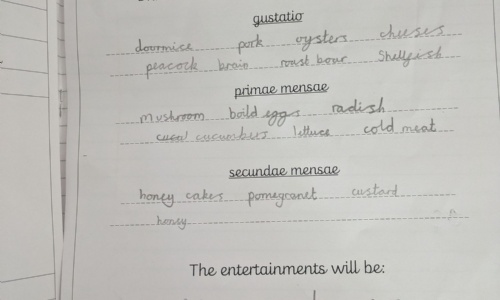 gustatio
doormise pork oysters cheeses
peacock brain roast boar Shellfish
primae mensae
mushroom boild eggs radish
cucumbers lettuce cold meat
secundae mensae
honey cakes pomegranet custard
honey
The entertainments will be: